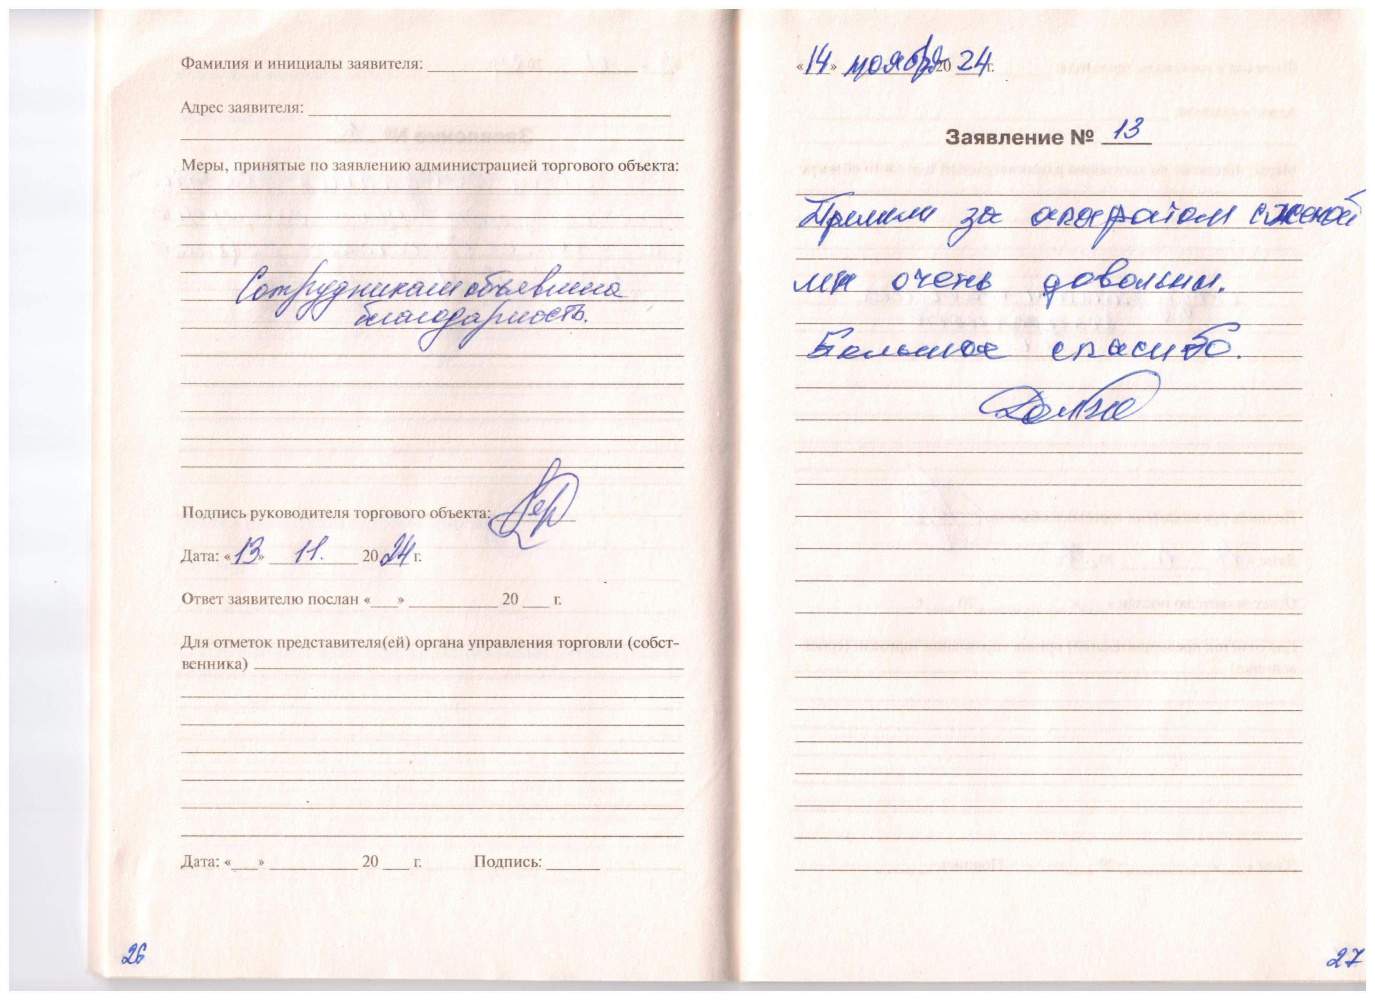 Фамилия и инициалы заявителя:
Адрес заявителя:
Меры, принятые по заявлению администрацией торгового объекта:
Сотрудникам объявлена
благодарность.
Подпись руководителя торгового объекта:
Дата: «13» 11. 2024 г.
Ответ заявителю послан «___» ________ 20 ___ г.
Для отметок представителя(ей) органа управления торговли (собст-
венника)
Дата: «___» ________ 20 ___ г. Подпись:
26
«14» ноября 2024 г.
Заявление № 13
Пришли за апаратом с женой
мы очень довольны.
Большое спасибо.
27